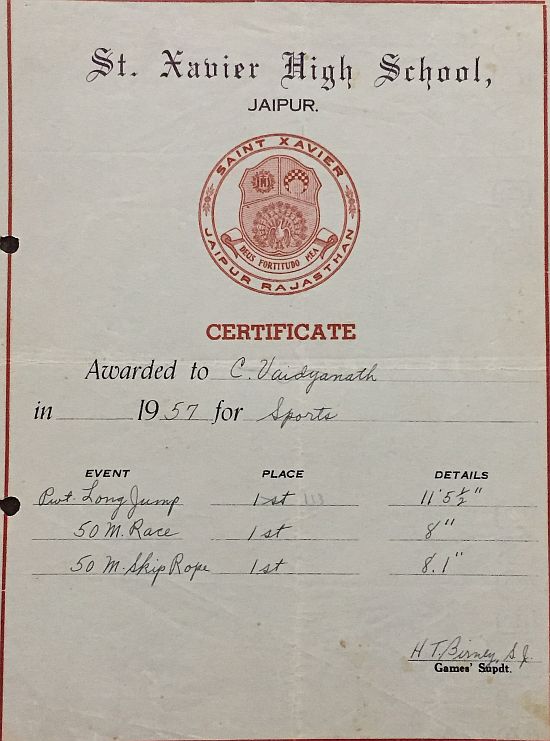 St. Xavier High School,
JAIPUR.
SAINT XAVIER
DEUS FORTITUDO MEA
JAIPUR RAJASTHAN
CERTIFICATE
Awarded to C. Vaidyanath
in 1957 for Sports
EVENT PLACE DETAILS
Long Jump 1st 11'5½"
50 M. Race 1st 8"
50 M. Skip Rope 1st 8.1"
H T. Birney, S.J.
Games' Supdt.